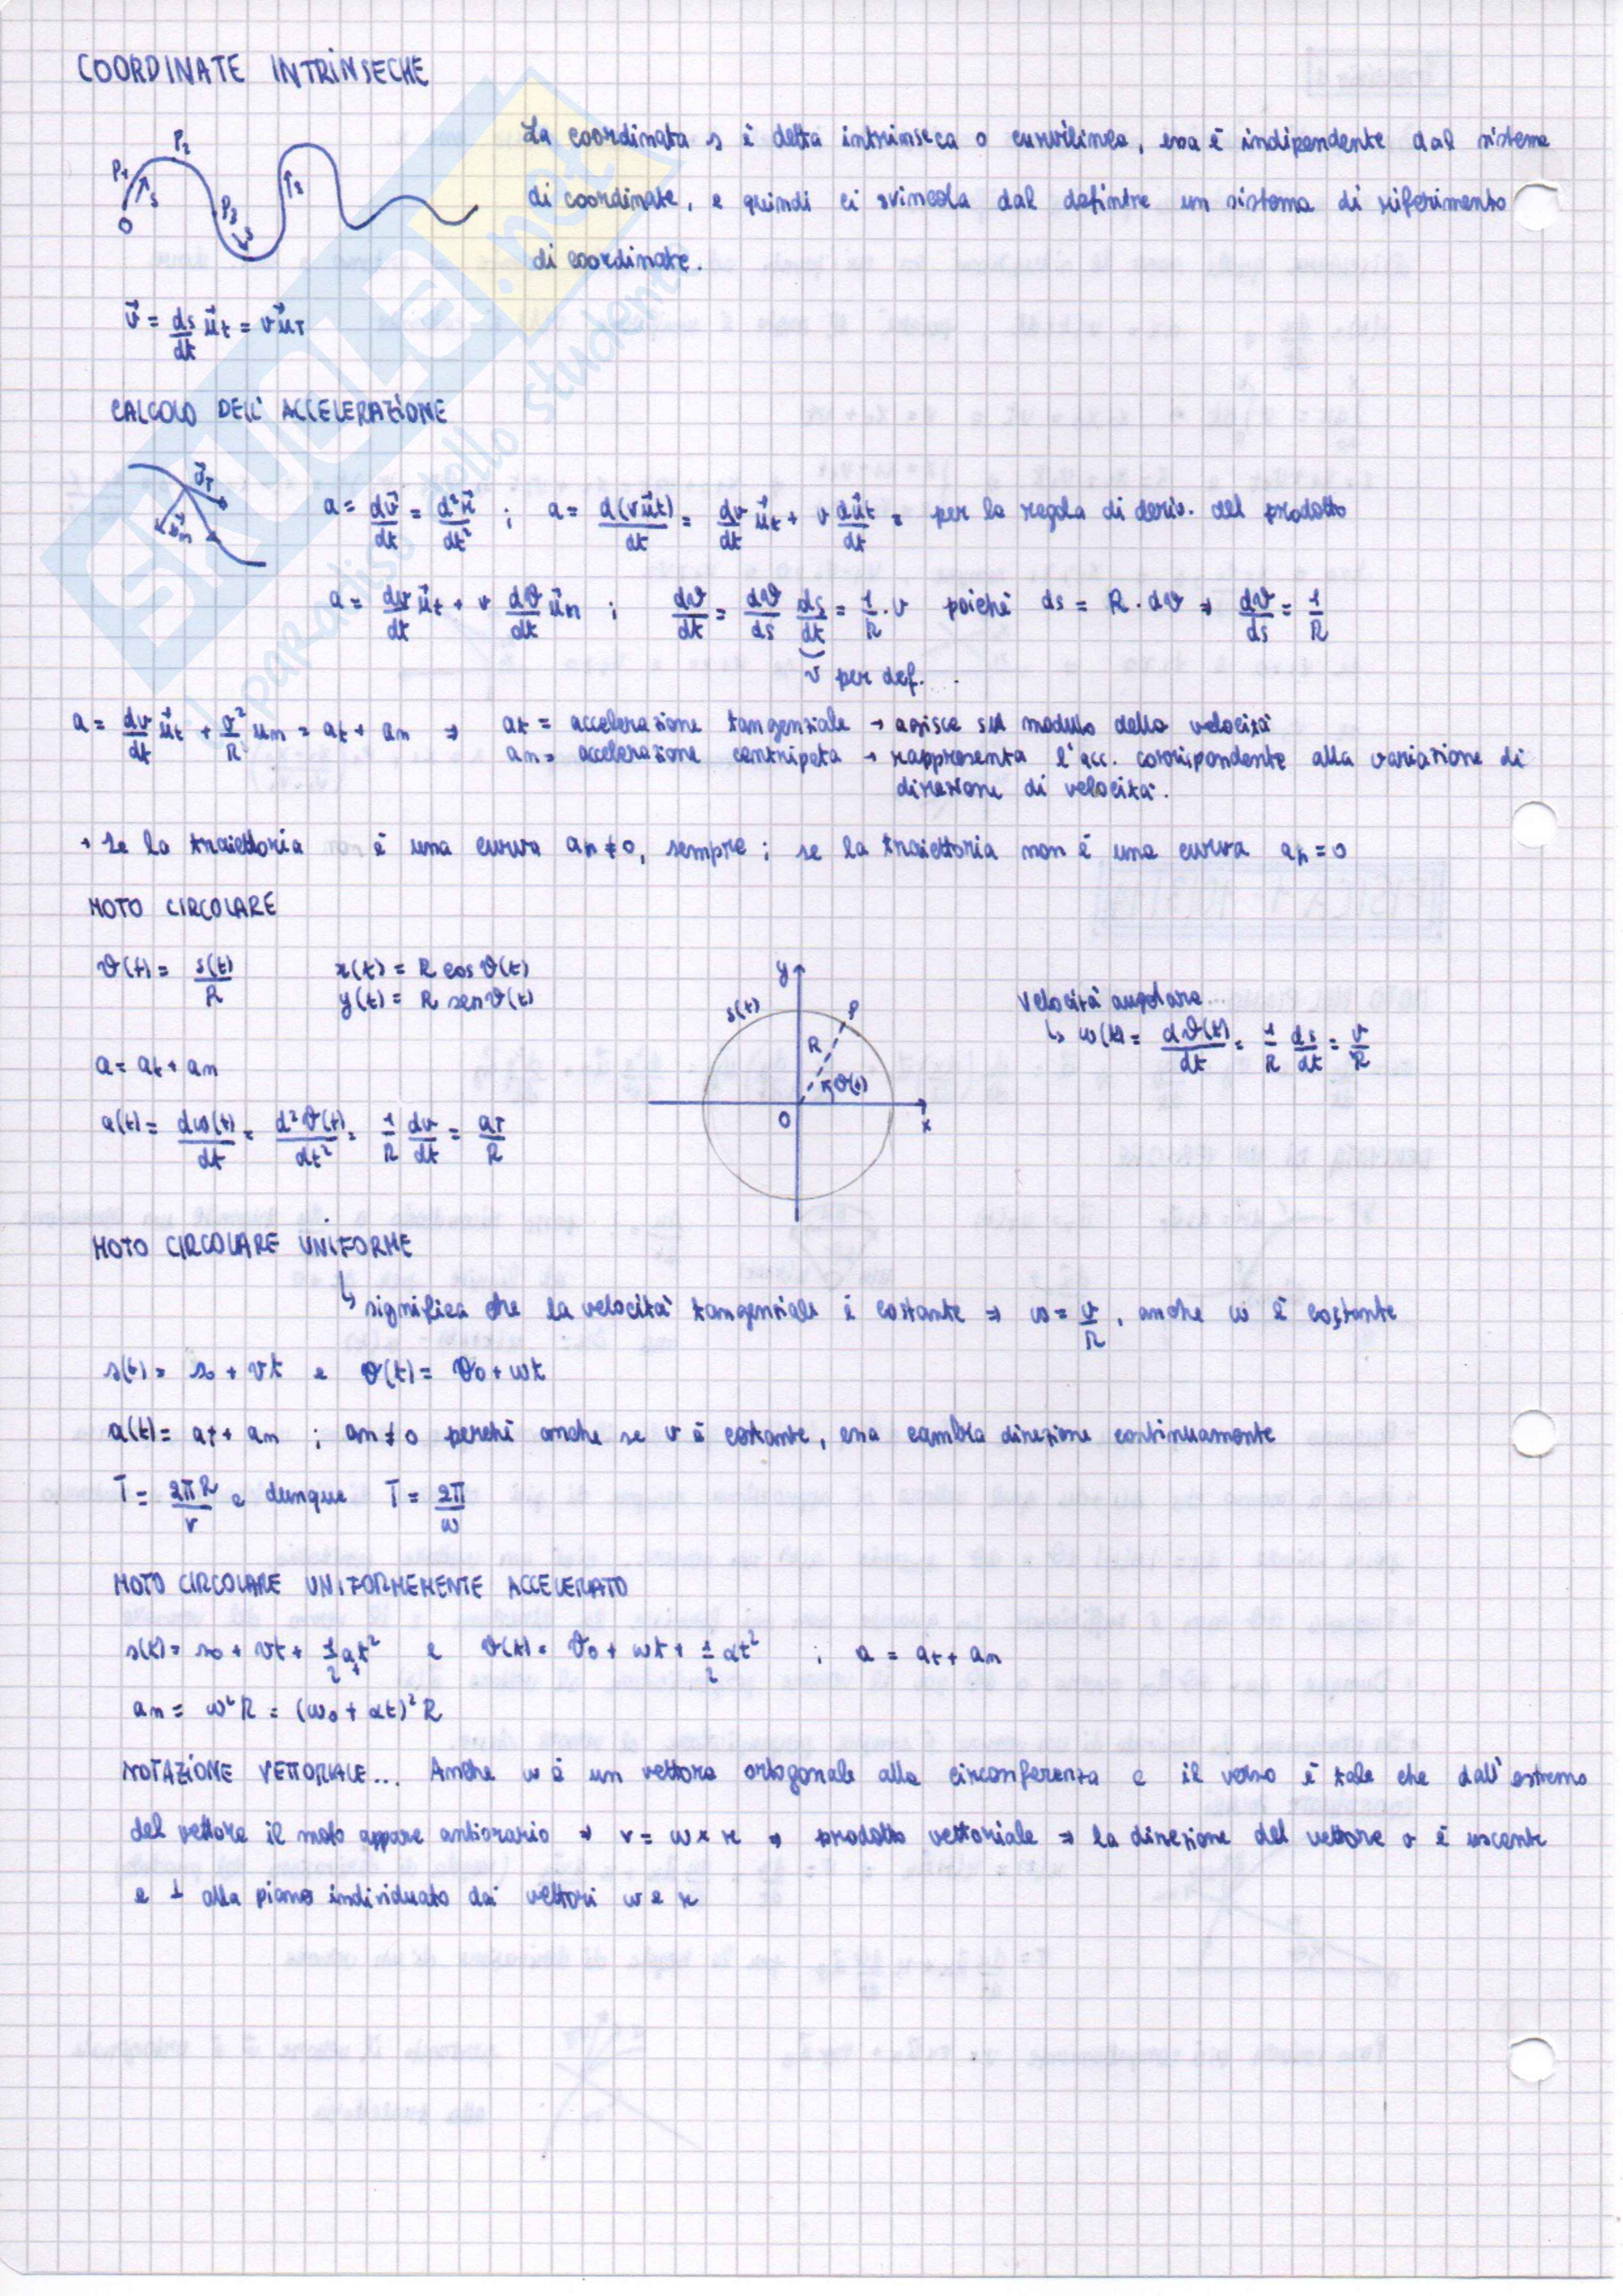 COORDINATE INTRINSECHE
P1 P2 P3 s s s O
La coordinata s è detta intrinseca o curvilinea, essa è indipendente dal sistema
di coordinate, e quindi ci svincola dal definire un sistema di riferimento
di coordinate.
v⃗ = ds/dt u⃗t = v u⃗T
CALCOLO DELL' ACCELERAZIONE
a = dv⃗/dt = d²r⃗/dt² ; a = d(v u⃗t)/dt = dv/dt u⃗t + v du⃗t/dt = per la regola di deriv. del prodotto
a = dv/dt u⃗t + v dϑ/dt u⃗n ; dϑ/dt = dϑ/ds ds/dt = 1/R · v poiché ds = R · dϑ ⇒ dϑ/ds = 1/R
v per def.
a = dv/dt u⃗t + v²/R un = at + an ⇒ at = accelerazione tangenziale → agisce sul modulo della velocità
an = accelerazione centripeta → rappresenta l'acc. corrispondente alla variazione di
direzione di velocità.
→ Se la traiettoria è una curva an ≠ 0, sempre ; se la traiettoria non è una curva an = 0
MOTO CIRCOLARE
ϑ(t) = s(t)/R x(t) = R cos ϑ(t)
y(t) = R sen ϑ(t)
y s(t) P R ϑ(t) O x
Velocità angolare...
↳ ω(t) = dϑ(t)/dt = 1/R ds/dt = v/R
a = at + an
α(t) = dω(t)/dt = d²ϑ(t)/dt² = 1/R dv/dt = aT/R
MOTO CIRCOLARE UNIFORME
↳ significa che la velocità tangenziale è costante ⇒ ω = v/R, anche ω è costante
s(t) = s0 + vt e ϑ(t) = ϑ0 + ωt
a(t) = aT + an ; an ≠ 0 perché anche se v è costante, essa cambia direzione continuamente
T = 2πR/v e dunque T = 2π/ω
MOTO CIRCOLARE UNIFORMEMENTE ACCELERATO
s(t) = s0 + vt + 1/2 at t² e ϑ(t) = ϑ0 + ωt + 1/2 αt² ; a = at + an
an = ω²R = (ω0 + αt)²R
NOTAZIONE VETTORIALE... Anche ω è un vettore ortogonale alla circonferenza e il verso è tale che dall'estremo
del vettore il moto appare antiorario ⇒ v = ω × r ⇒ prodotto vettoriale ⇒ la direzione del vettore v è uscente
e ⊥ alla piano individuato dai vettori ω e r
SKUOLA.net
il paradiso dello studente